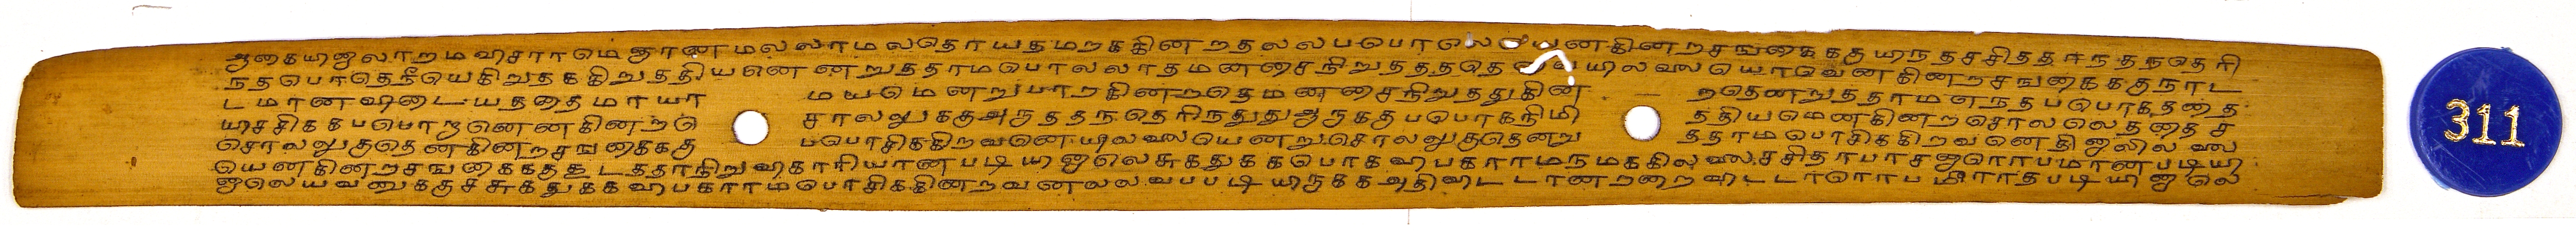 ஆகையினாலாறமவிசாரமெஞாணமலலாமலதொயதமறககினறதலலபபொலெ யனகினறசஙகைககுயிநதசசிதத நநதநதெரி
நதபொதெநீயெகிறுதககிறுததியனெனறுததாமபொலலாதமனனசநிறுதததெ யிலலை யொவெனகினறசஙகைககுநாட
டமானவிடையததைமாயா மயமெனறுபாறகினறதெமனசைநிறுததுகின றதெனறுததாமஎநதபபொததை
யிசசிககபபொறானெனகினறசெ சாலலுககுஅருததநதெரிநதுதுஅருகதுபபொகநிமி ததியமெனகினறசொலலெததைச
சொலலுகுதெனகினறசஙகைககு பபொசிககிறவனெயிலலையெனறுசொலலுகுதெனறு ததாமபொசிககிறவனெகிஇலலிலலை
யெனகினறசஙகைககதகூடததாநிறுவிகாரியானபடியினாலெசுகதுககபொகவிபகாரமநமககிலலை,சசிதாபாசஜரொபமானபடியி
னாலெயவனுககுசசுகதுககவிபகாரமபொசிககினறவனலலவபபடியிருககஅதிஷடடானறறைவிடடாரொபமீராதபடியினாலெ
311